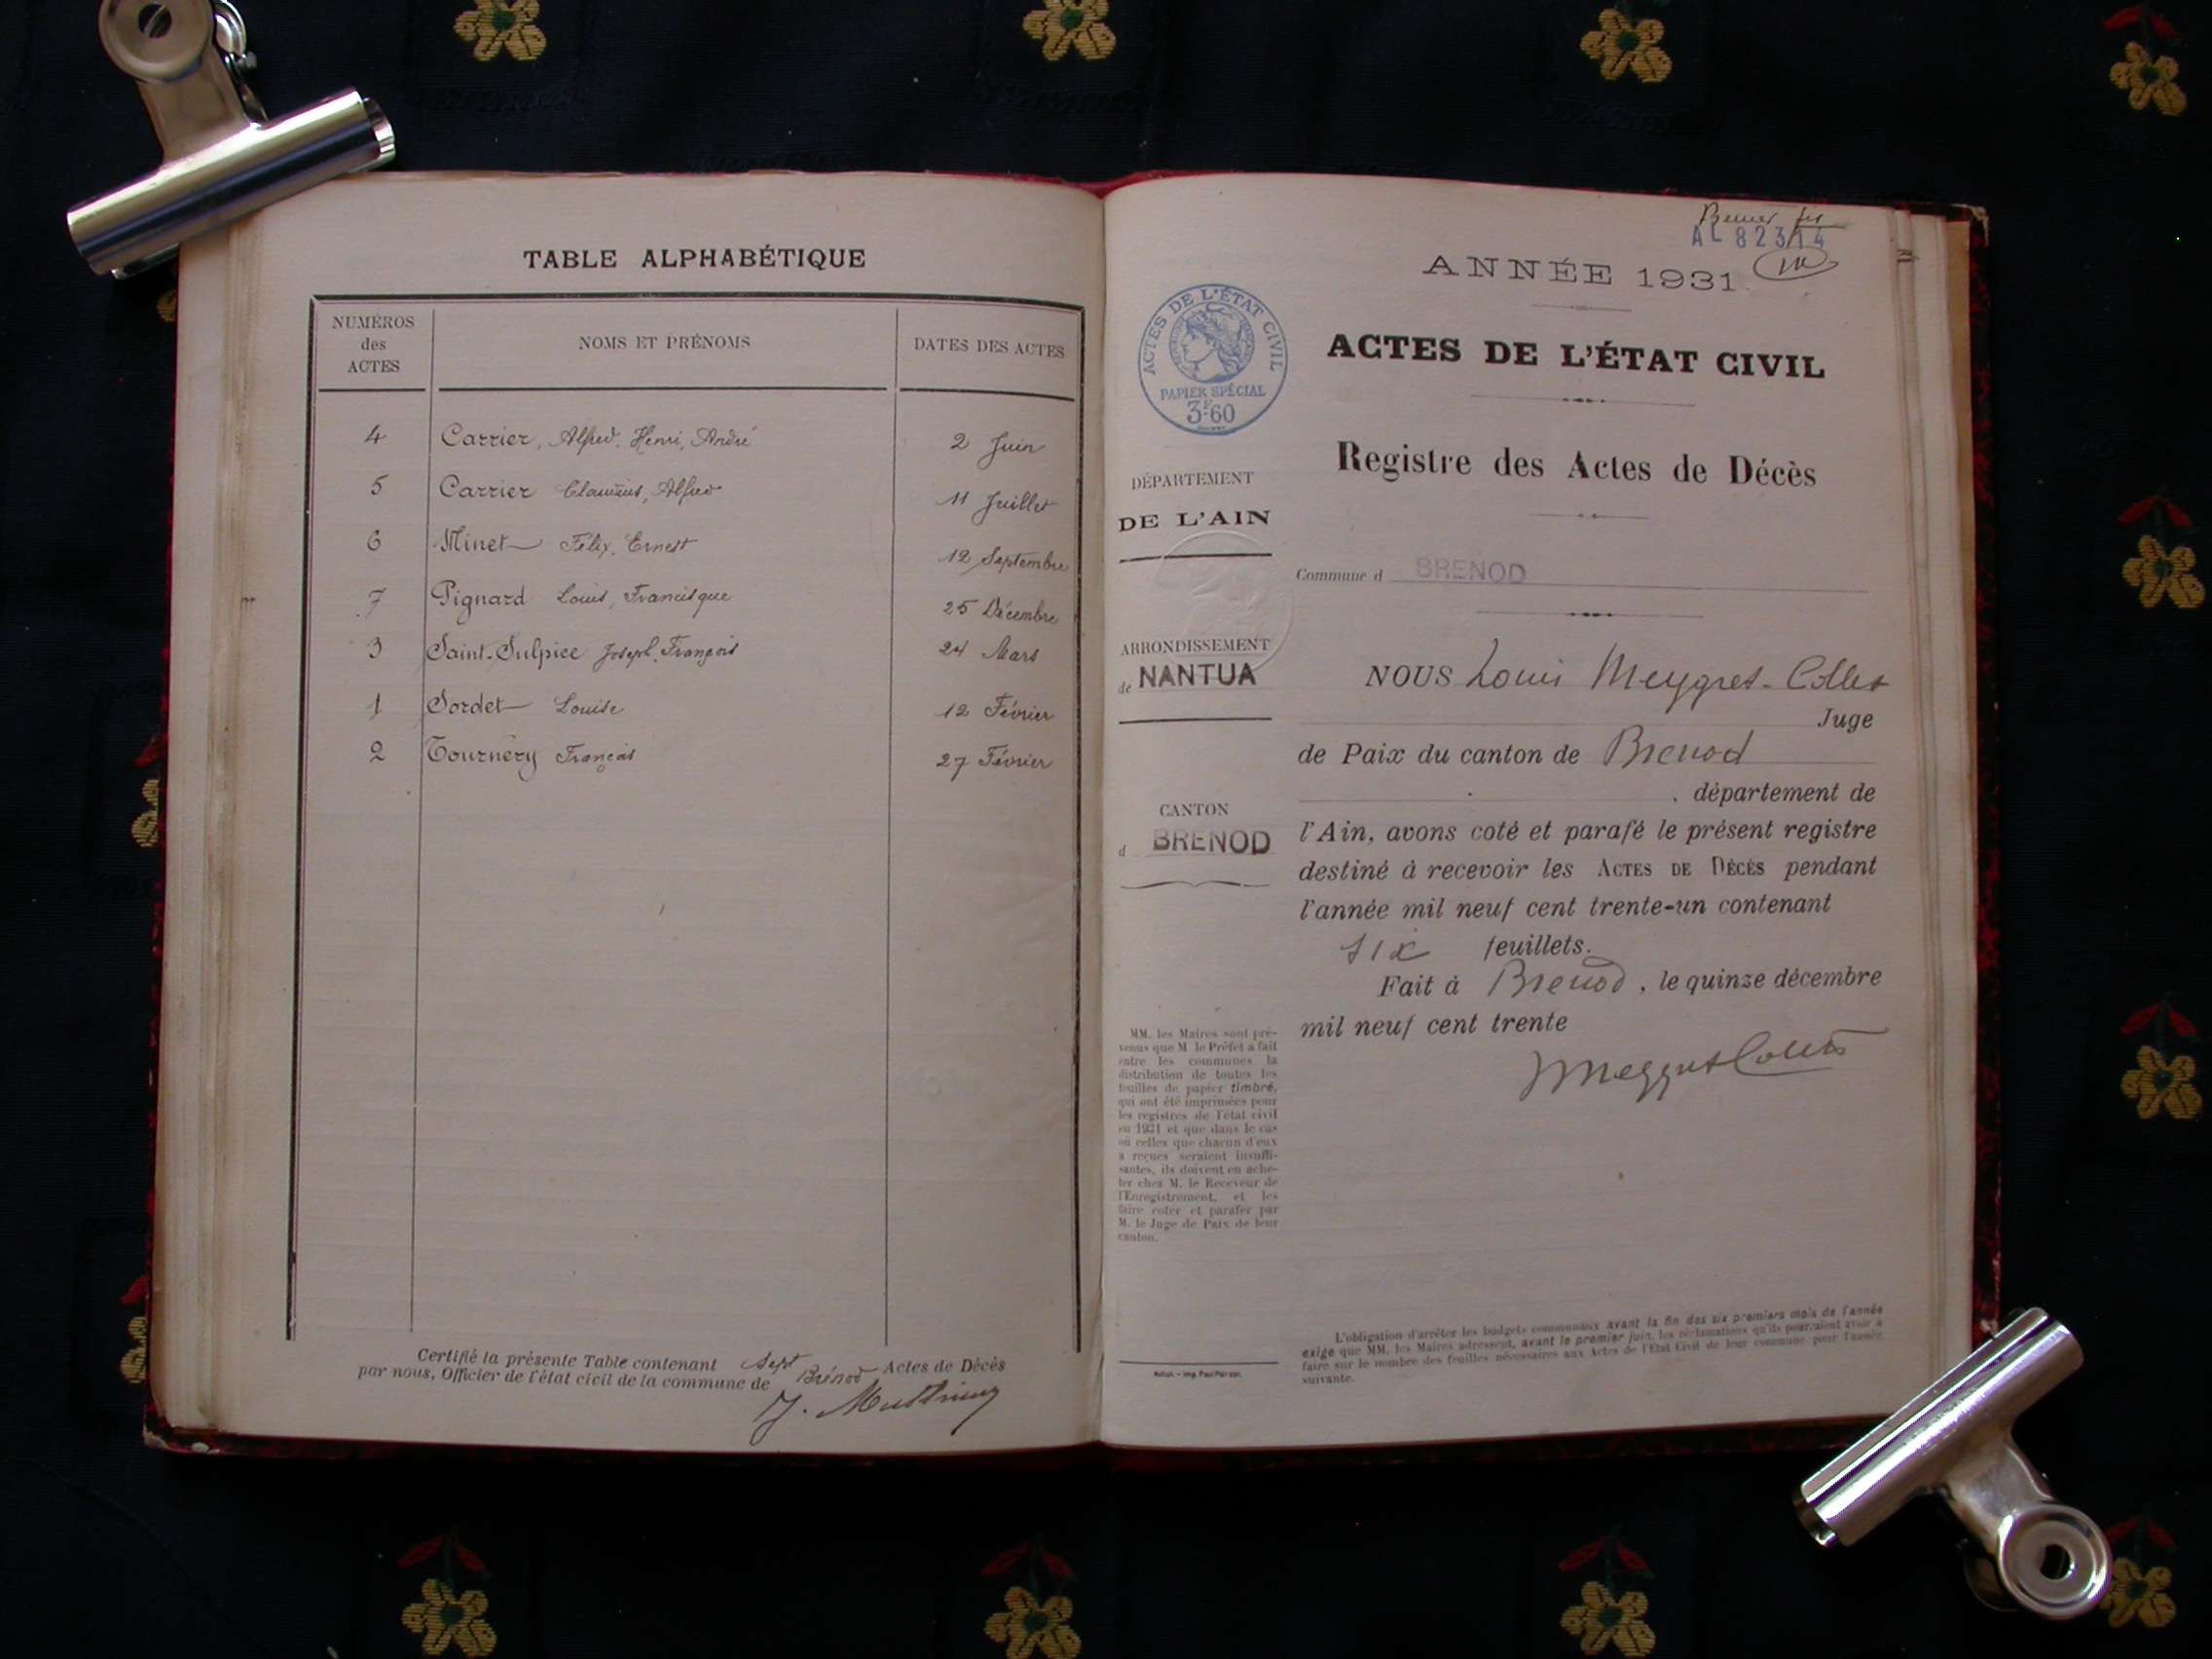 TABLE ALPHABÉTIQUE
NUMÉROS des ACTES
NOMS ET PRÉNOMS
DATES DES ACTES
4 Carrier, Alfred, Henri, André 2 Juin
5 Carrier Claudius, Alfred 11 Juillet
6 Minet Félix, Ernest 12 Septembre
7 Pignard Louis, Francisque 25 Décembre
3 Saint-Sulpice Joseph, François 24 Mars
1 Sordet Louise 12 Février
2 Tournery François 27 Février
Certifié la présente Table contenant Sept Actes de Décès
par nous, Officier de l'état civil de la commune de Brénod
AL 82314
ANNÉE 1931
ACTES DE L'ÉTAT CIVIL
PAPIER SPÉCIAL
3F60
ACTES DE L'ÉTAT CIVIL
Registre des Actes de Décès
DÉPARTEMENT
DE L'AIN
Commune d BRENOD
ARRONDISSEMENT
de NANTUA
CANTON
d BRENOD
NOUS Louis Meygret-Collet
Juge
de Paix du canton de Brenod
, département de
l'Ain, avons coté et parafé le présent registre
destiné à recevoir les ACTES DE DÉCÈS pendant
l'année mil neuf cent trente-un contenant
six feuillets.
Fait à Brenod, le quinze décembre
mil neuf cent trente
MeygretCollet
MM. les Maires sont pré-
venus que M. le Préfet a fait
entre les communes la
distribution de toutes les
feuilles de papier timbré,
qui ont été imprimées pour
les registres de l'état civil
en 1931 et que dans le cas
où celles que chacun d'eux
a reçues seraient insuffi-
santes, ils doivent en ache-
ter chez M. le Receveur de
l'Enregistrement, et les
faire coter et parafer par
M. le Juge de Paix de leur
canton.
L'obligation d'arrêter les budgets communaux avant la fin des six premiers mois de l'année
exige que MM. les Maires adressent, avant le premier juin, les réclamations qu'ils pourraient avoir à
faire sur le nombre des feuilles nécessaires aux Actes de l'État Civil de leur commune pour l'année
suivante.